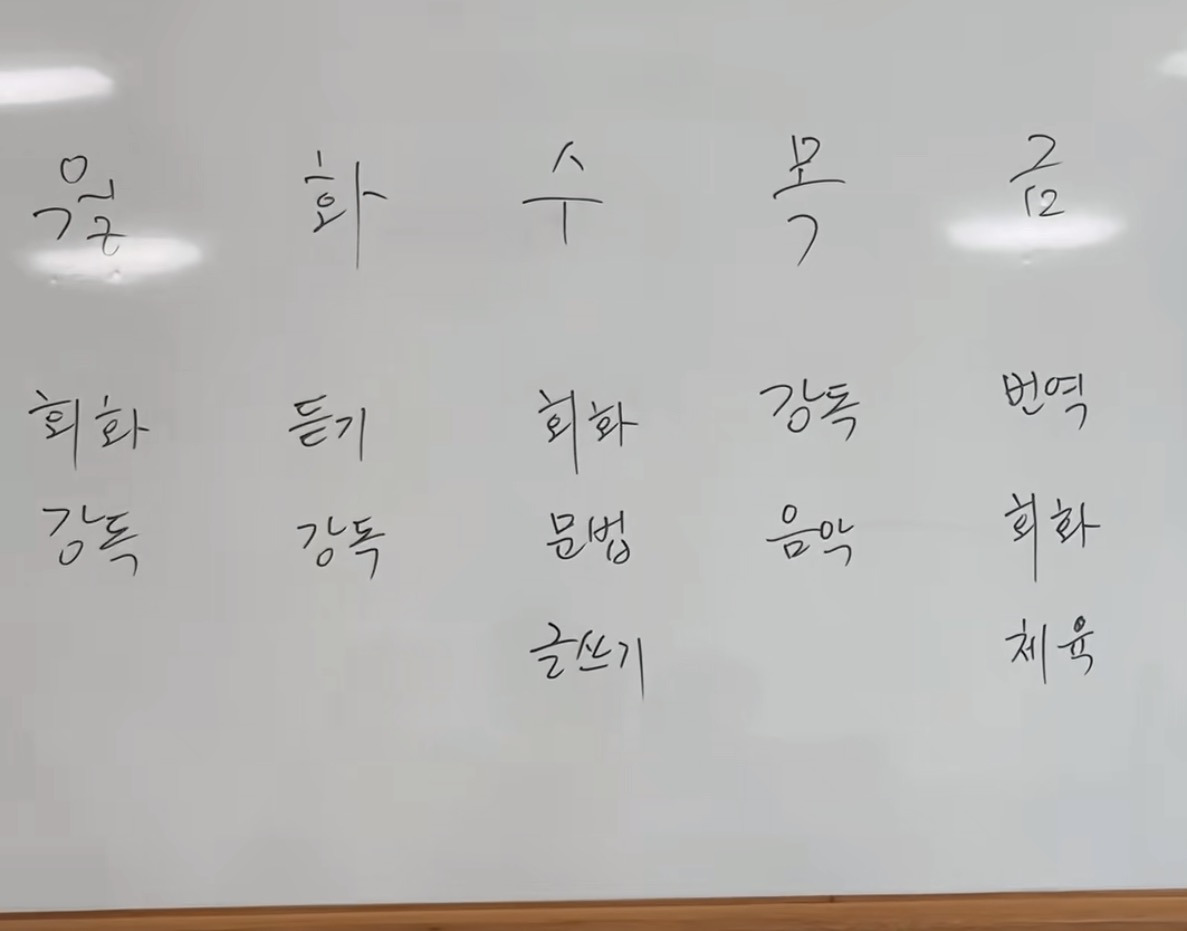 월 화 수 목 금
회화 듣기 회화 강독 번역
강독 강독 문법 음악 회화
글쓰기 체육